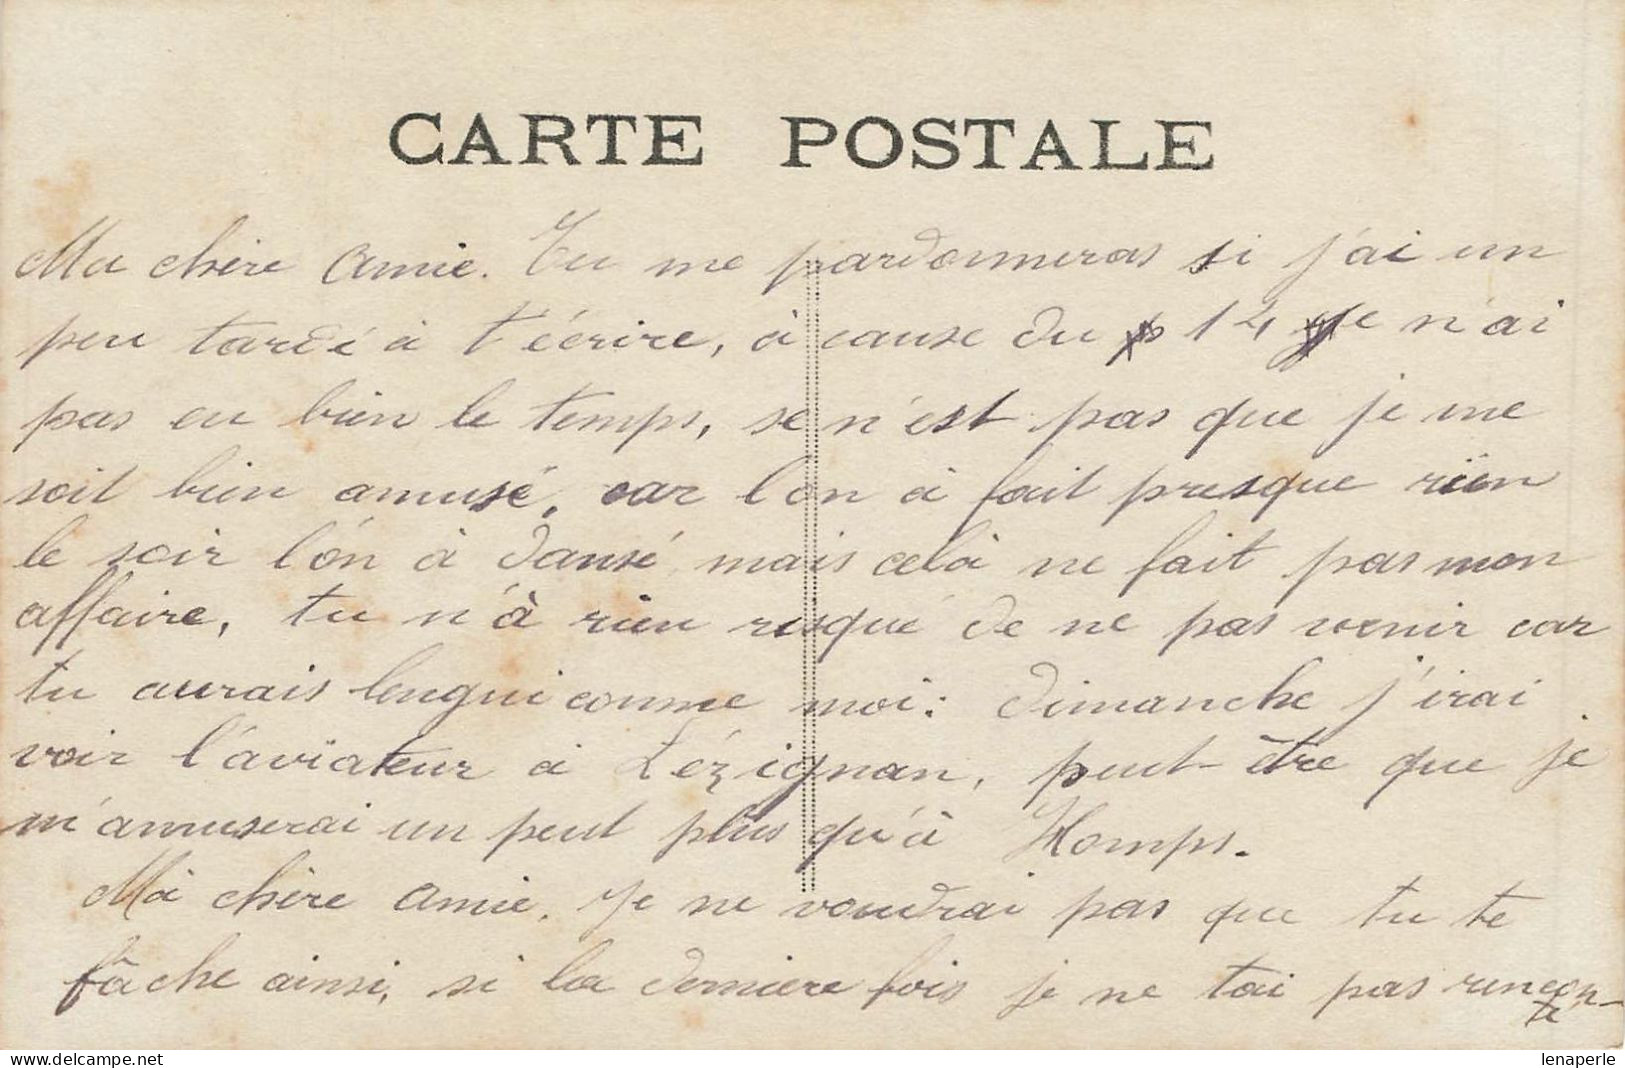 CARTE POSTALE
Ma chère amie. Tu me pardonneras si j'ai un
peu tardé à t'écrire, à cause du 14 je n'ai
pas eu bien le temps, se n'est pas que je me
soit bien amusé, car l'on à fait presque rien
le soir l'on à dansé mais celà ne fait pas mon
affaire, tu n'à rien risqué de ne pas venir car
tu aurais langui comme moi: dimanche j'irai
voir l'aviateur à Lézignan, peut-être que je
m'amuserai un peut plus qu'à Homps.
Mà chère amie. Je ne voudrai pas que tu te
fâche ainsi, si la derniere fois je ne tai pas rencon-
té
delcampe.net
lenaperle